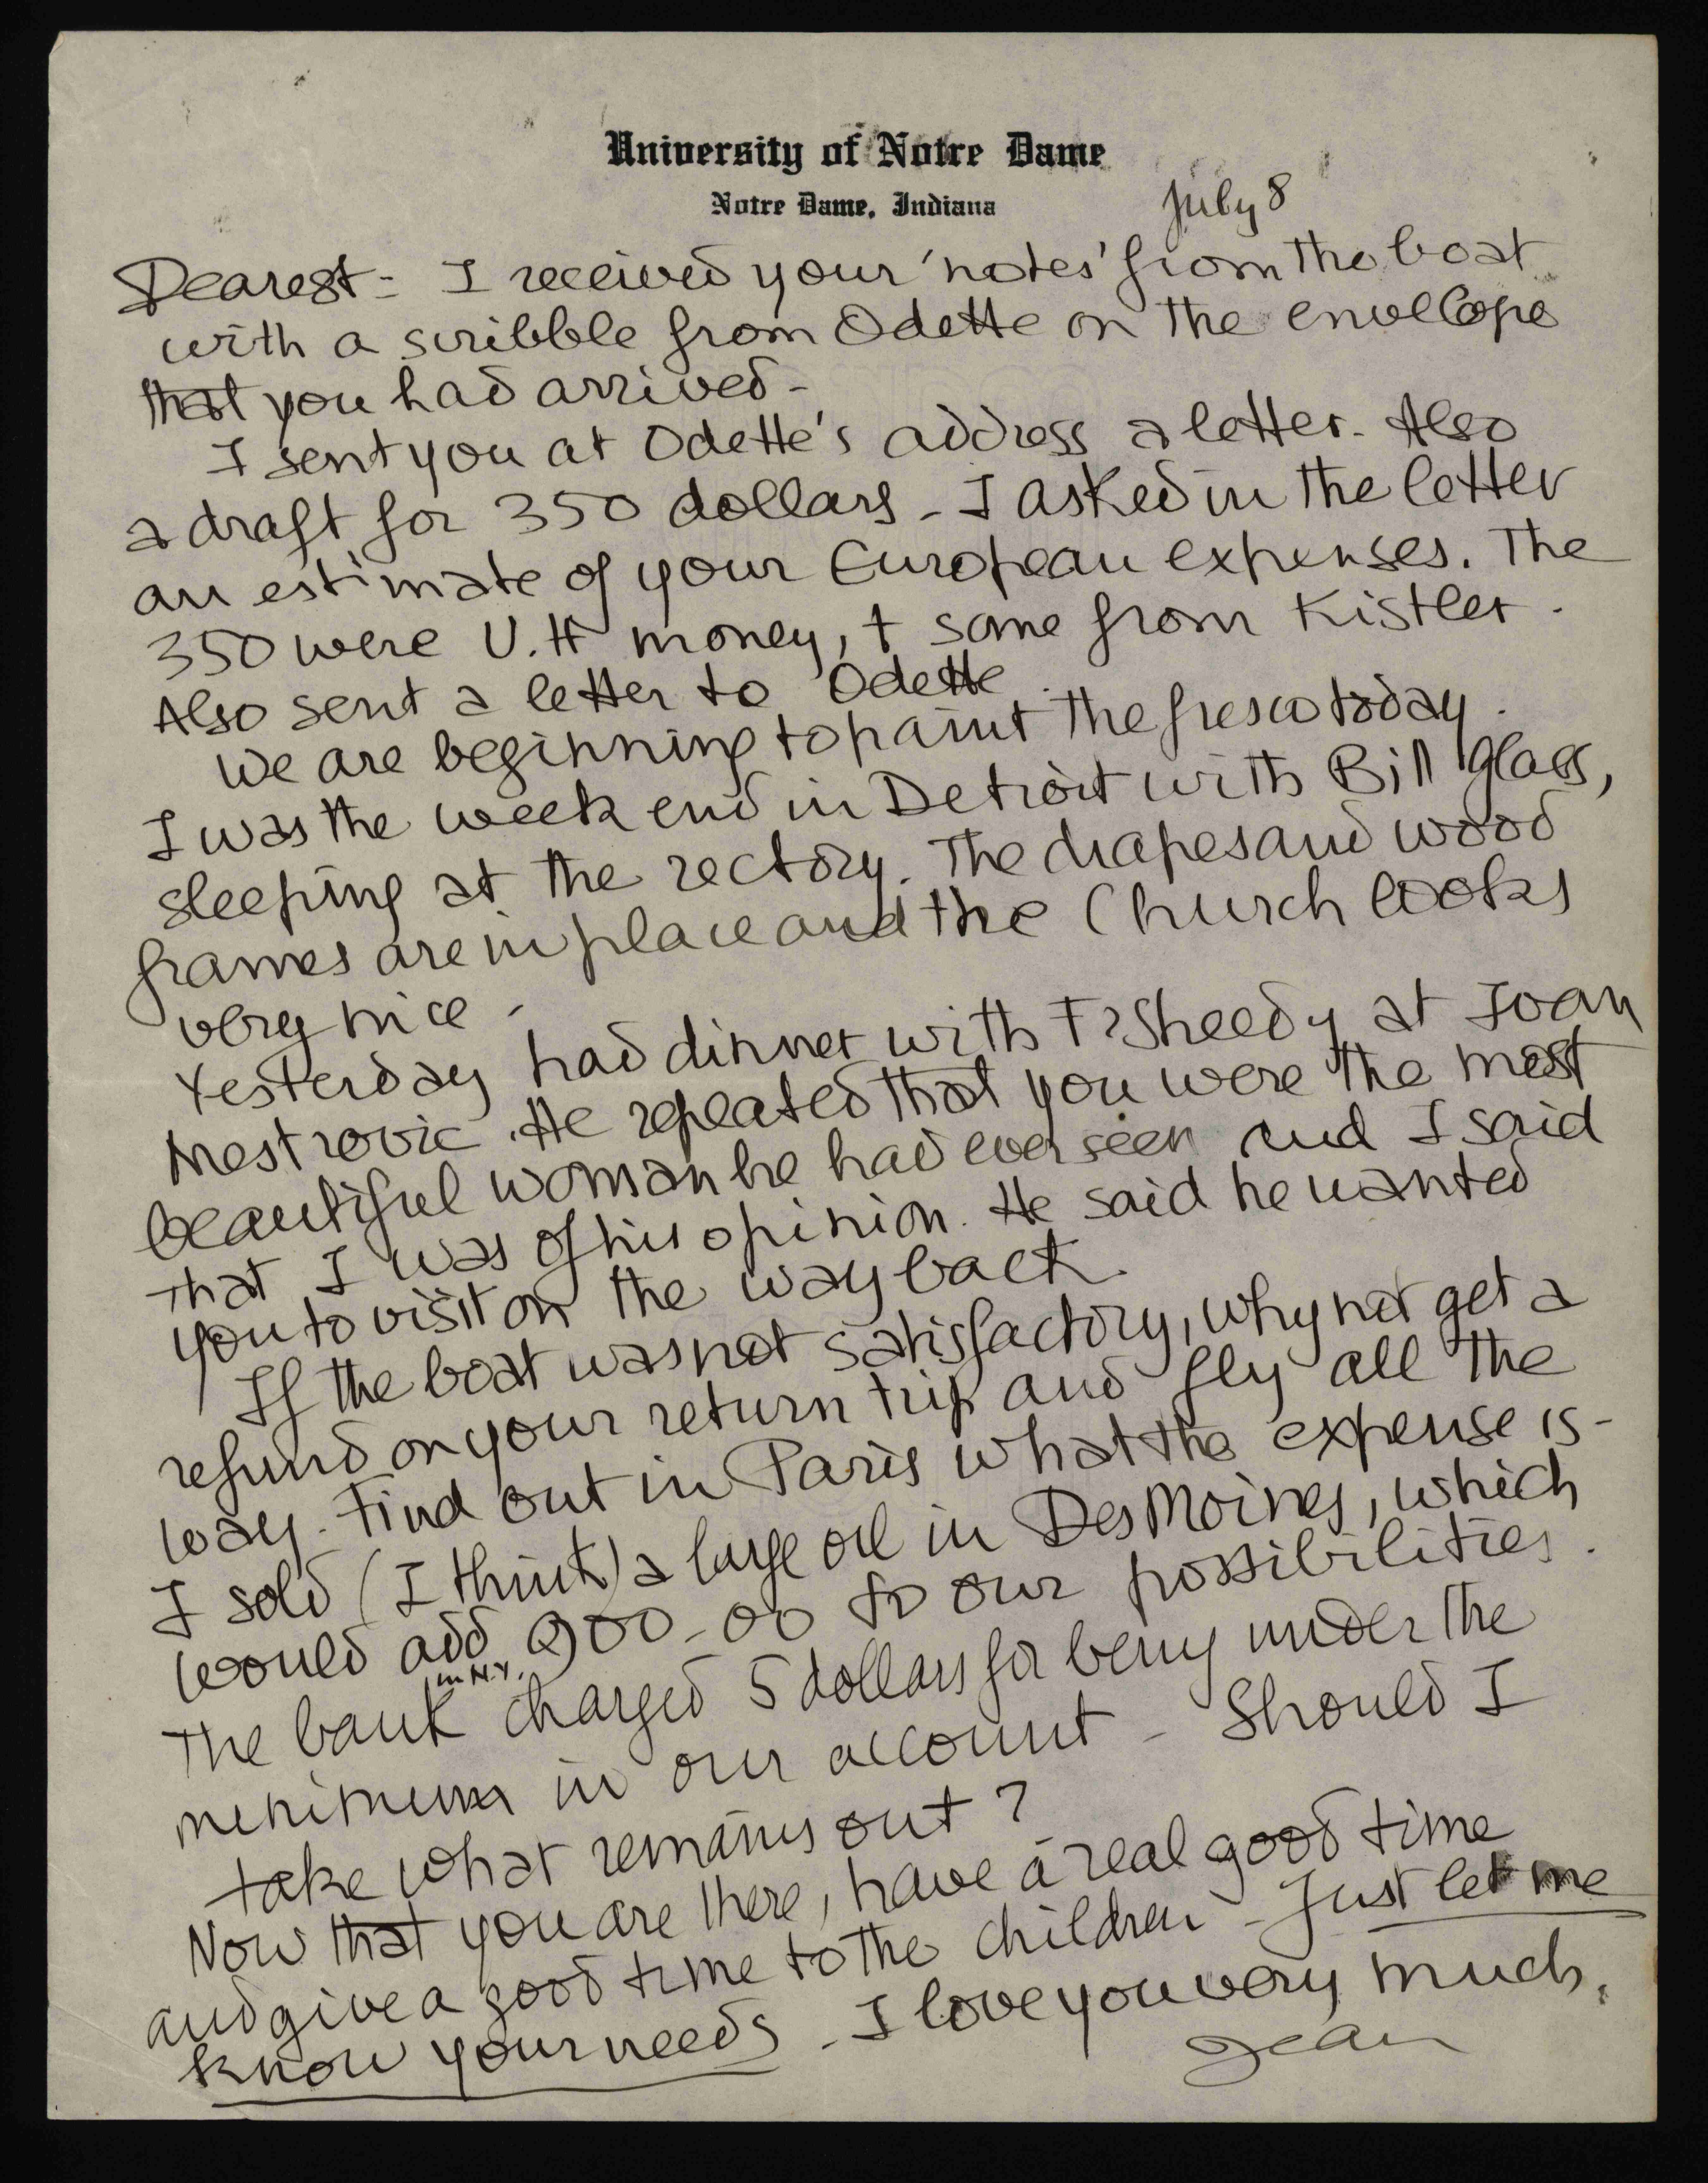 University of Notre Dame
Notre Dame, Indiana
July 8
Dearest - I received your 'notes' from the boat
with a scribble from Odette on the envellope
that you had arrived -
I sent you at Odette's address a letter. Also
a draft for 350 dollars - I asked in the letter
an estimate of your European expenses. The
350 were U.H money, + some from Kistler.
Also sent a letter to Odette.
We are beginning to paint the fresco today.
I was the week end in Detroit with Bill Glass,
sleeping at the rectory. The drapes and wood
frames are in place and the Church looks
very nice -
Yesterday had dinner with Fr Sheedy at Ivan
Mestrovic. He repeated that you were the most
beautiful woman he had ever seen and I said
that I was of his opinion. He said he wanted
you to visit on the way back.
If the boat was not satisfactory, why not get a
refund on your return trip and fly all the
way. Find out in Paris what the expense is -
I sold (I think) a large oil in Des Moines, which
would add 900.00 to our possibilities.
in N.Y.
The bank charged 5 dollars for being under the
menimum in our account - Should I
take what remains out?
Now that you are there, have a real good time
and give a good time to the children - Just let me
know your needs - I love you very much.
Jean